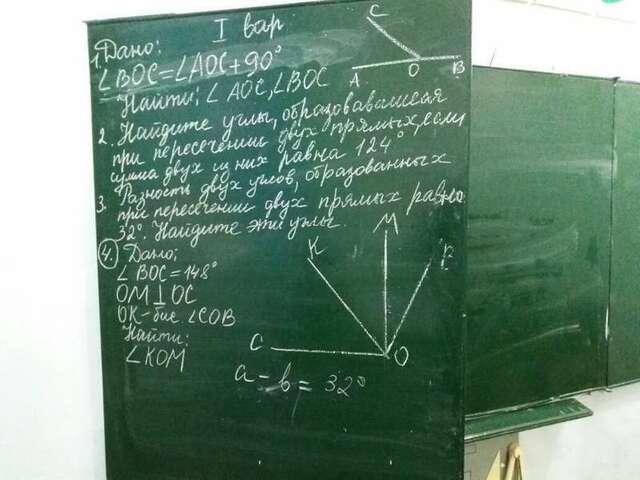 I вар.
1. Дано:
∠BOC=∠AOC+90°
Найти: ∠AOC, ∠BOC
C
A O B
2. Найдите углы, образовавшиеся
при пересечении двух прямых, если
сумма двух из них равна 124°.
3. Разность двух углов, образованных
при пересечении двух прямых равна
32°. Найдите эти углы.
4. Дано:
∠BOC=148°
OM⊥OC
OK-бис. ∠COB
Найти:
∠KOM
M
K B
C O
a-b=32°